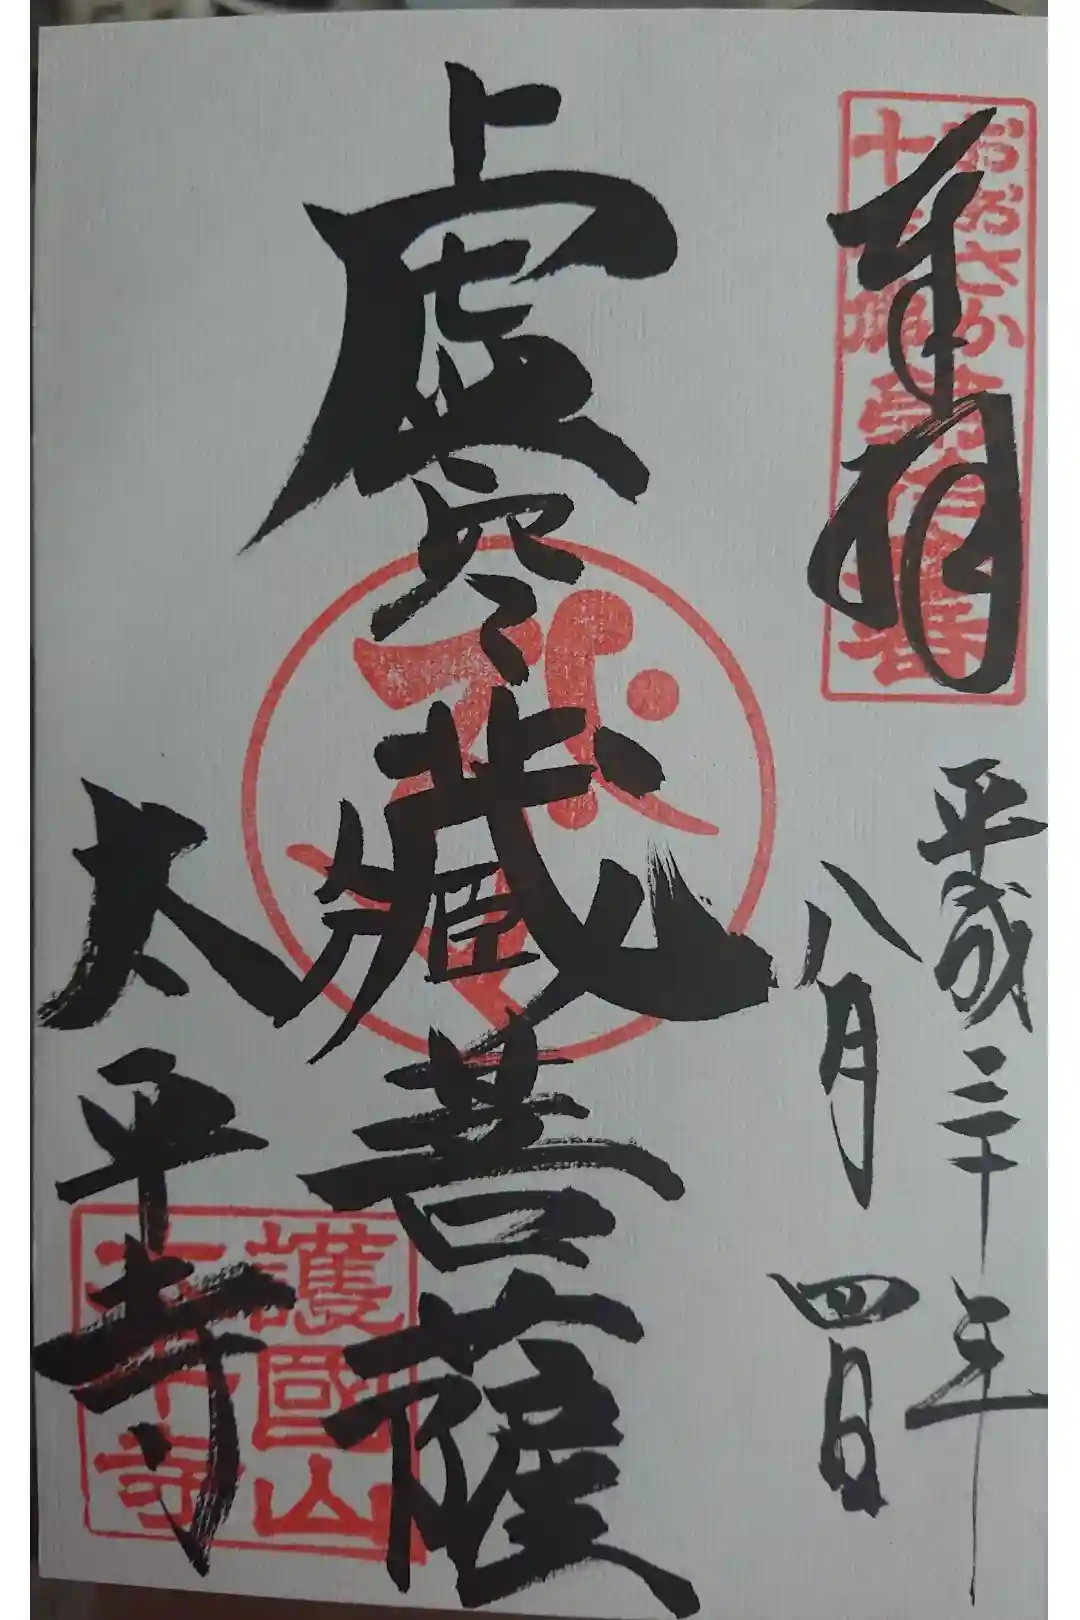 奉拝
おおさか
十三佛
平成三十年
八月四日
虚空藏菩薩
太平寺
護國山
太平寺